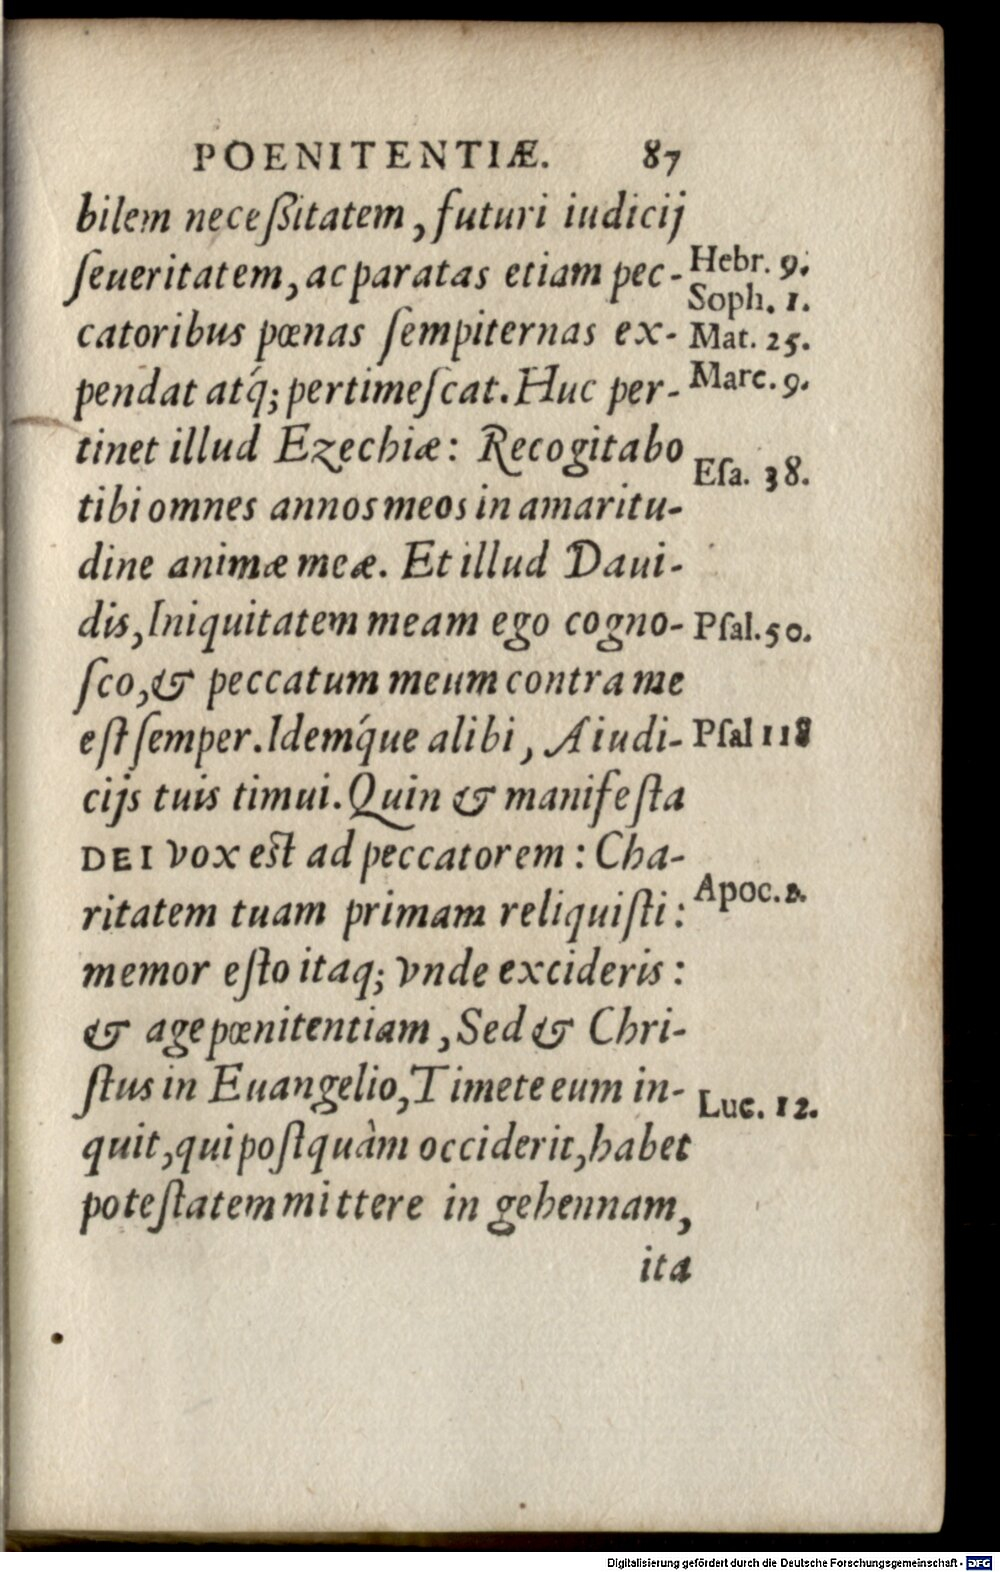 POENITENTIÆ. 87
bilem neceßitatem, futuri iudicij
ſeueritatem, ac paratas etiam pec-
Hebr. 9.
Soph. 1.
catoribus pœnas ſempiternas ex-
Mat. 25.
pendat atq́; pertimeſcat. Huc per-
Marc. 9.
tinet illud Ezechiæ: Recogitabo
Eſa. 38.
tibi omnes annos meos in amaritu-
dine animæ meæ. Et illud Daui-
dis, Iniquitatem meam ego cogno-
Pſal. 50.
ſco, & peccatum meum contra me
eſt ſemper. Idemq́ue alibi, A iudi-
Pſal 118
cijs tuis timui. Quin & manifeſta
DEI vox eſt ad peccatorem: Cha-
Apoc. 2.
ritatem tuam primam reliquiſti:
memor eſto itaq; vnde excideris:
& age pœnitentiam, Sed & Chri-
ſtus in Euangelio, Timete eum in-
Luc. 12.
quit, qui poſtquàm occiderit, habet
poteſtatem mittere in gehennam,
ita
Digitalisierung gefördert durch die Deutsche Forschungsgemeinschaft - DFG